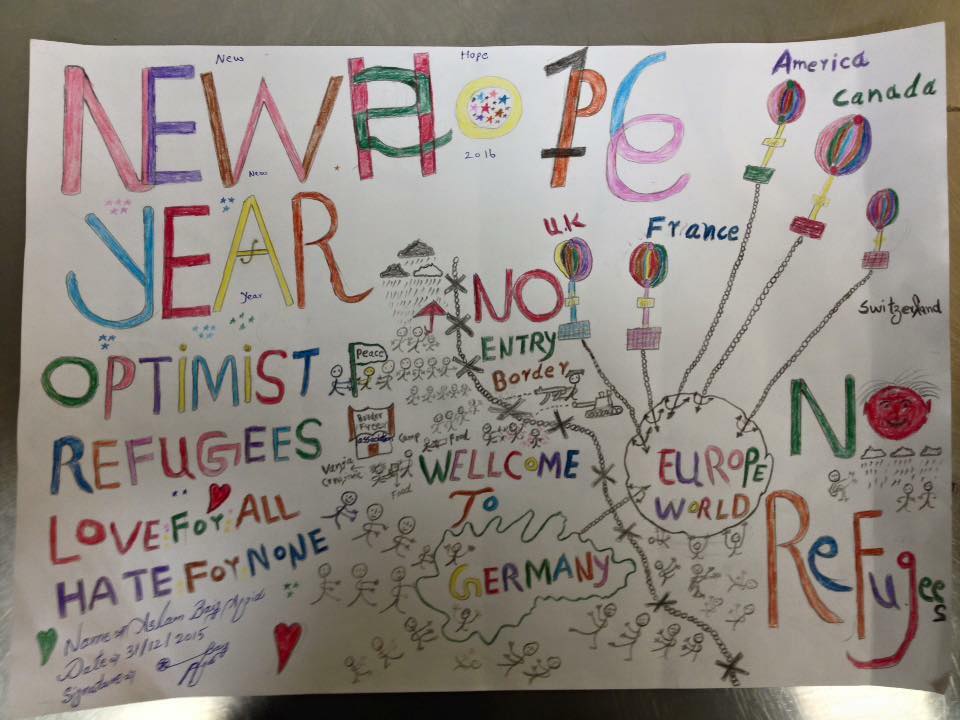 New
Hope
NEW HOPE
New
2016
America
Canada
YEAR
Year
U.K
France
Switzerland
NO
ENTRY
Border
OPTIMIST
Peace
REFUGEES
Border
Camp
Food
Food
WELLCOME
TO
GERMANY
EUROPE
WORLD
NO
Refugees
LOVE For ALL
HATE For NONE
Date: 31/12/2015